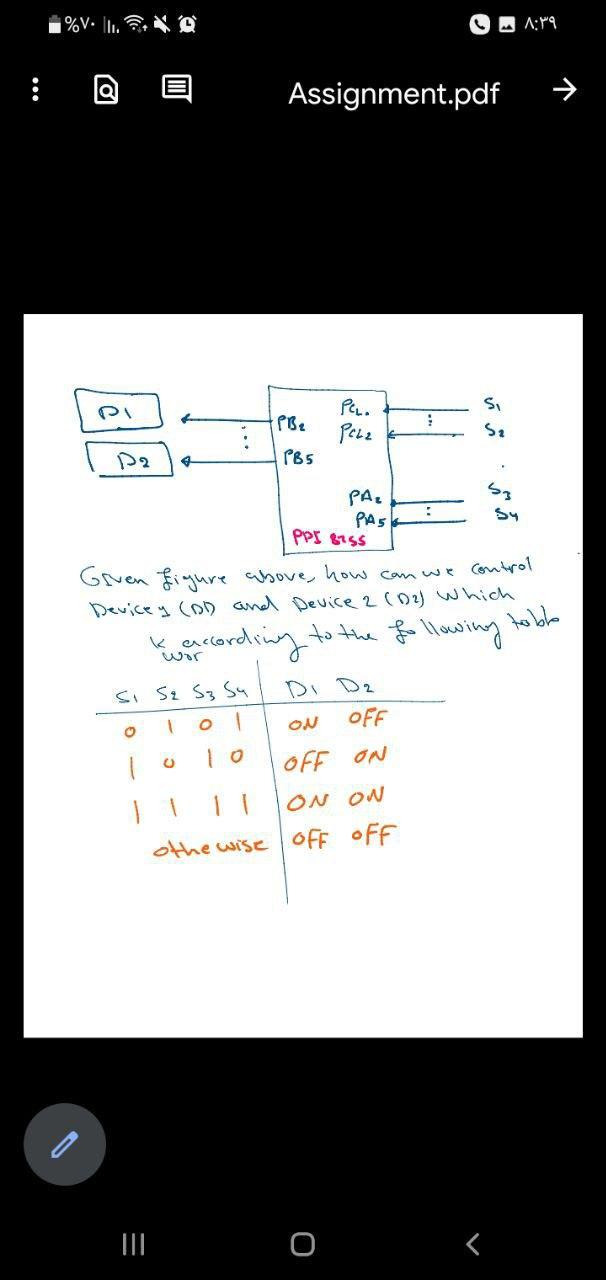 %٧٠ ٨:٣٩
Assignment.pdf
D1
D2
PB2
PB5
PCL0
PCL2
PA2
PA5
PPI 8255
S1
S2
S3
S4
Given figure above, how can we control
Device 1 (D1) and Device 2 (D2) which
work according to the following table
S1 S2 S3 S4 D1 D2
0 1 0 1 ON OFF
1 0 1 0 OFF ON
1 1 1 1 ON ON
othewise OFF OFF